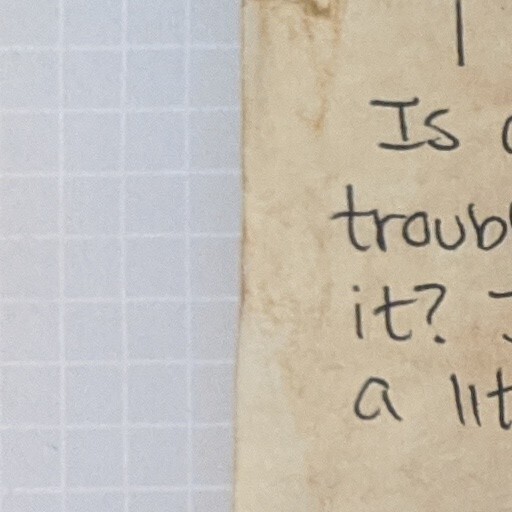 Is
troub
it?
a lit